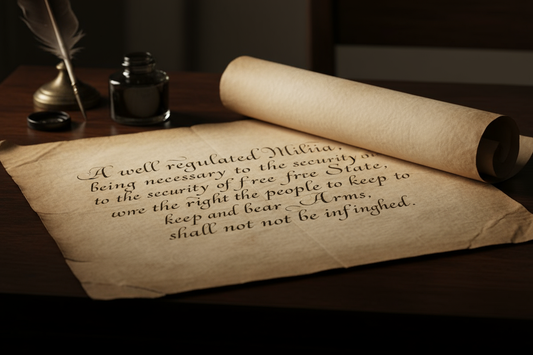 A well regulated Miliia,
being necessary to the security on
to the security of free free State,
the right the people to keep to
keep and bear Arms,
shall not not be infinghed.